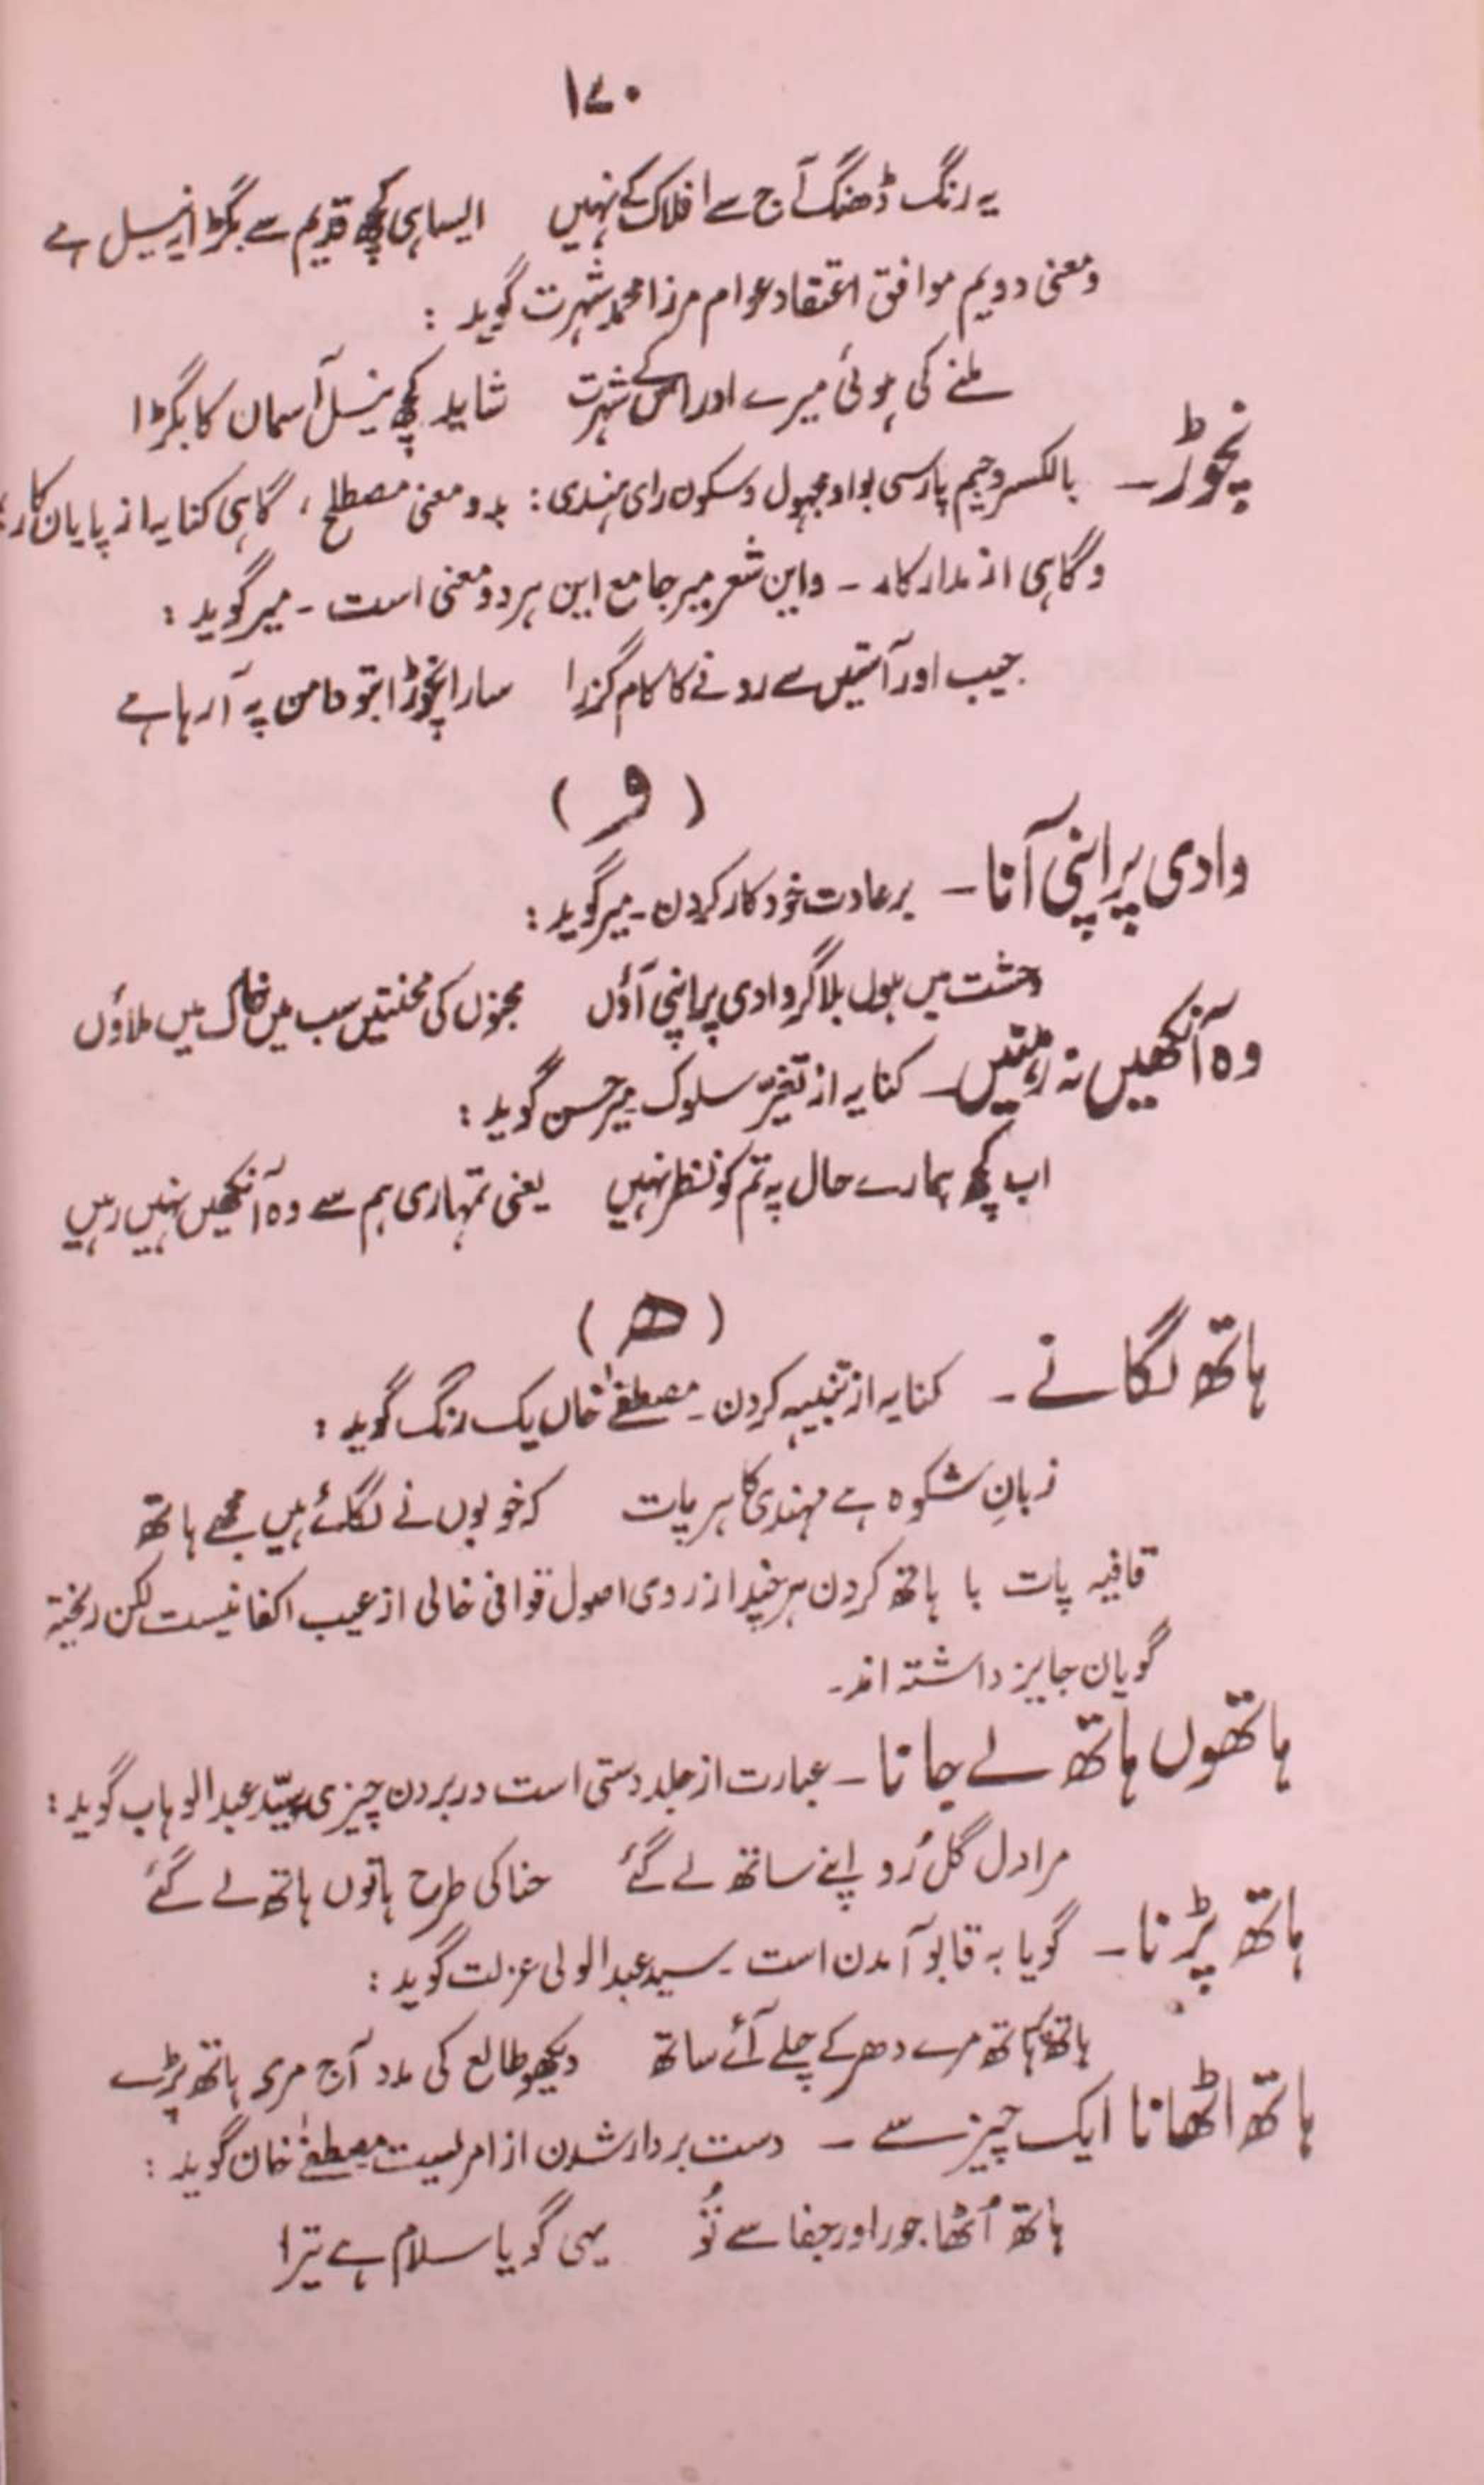 ۱۷۰
یہ رنگ ڈھنگ آج سے افلاک کے نہیں ایسا ہی کچھ قدیم سے بگڑا یہ نیل ہے
ومعنی دویم موافق اعتقاد عوام مرزا محمد شہرت گوید :
ملنے کی ہوئی میرے اور اس کے شہرت شاید کچھ نیل آسمان کا بگڑا
نچوڑ۔ بالکسر وجیم پارسی بواو مجہول وسکون رای ہندی : بدو معنی مصطلح ، گاہی کنایہ از پایان کار ؛
وگاہی از مدار کار ۔ واین شعر میر جامع این ہر دو معنی است ۔ میر گوید :
جیب اور آستیں سے رونے کا کام گزرا سارا نچوڑ ابتو دامن پہ آرہا ہے
( و )
وادی پر اپنی آنا ۔ بر عادت خود کار کردن ۔ میر گوید :
وحشت میں ہوں بلا گر وادی پر اپنی آؤں مجنوں کی محنتیں سب میں خاک میں ملاؤں
وہ آنکھیں نہ رہتیں ۔ کنایہ از تغیّر سلوک میر حسن گوید :
اب کچھ ہمارے حال پہ تم کو نظر نہیں یعنی تمہاری ہم سے وہ آنکھیں نہیں رہیں
( ھ )
ہاتھ لگانے ۔ کنایہ از تنبیہ کردن ۔ مصطفےٰ خاں یک رنگ گوید :
زبانِ شکوہ ہے مہندی کا ہر پات کہ خوبوں نے لگائے ہیں مجھے ہاتھ
قافیہ پات با ہاتھ کردن ہر چند از روی اصول قوافی خالی از عیب اکفا نیست لکن ریختہ
گویان جایز داشتہ اند ۔
ہاتھوں ہاتھ لے جانا ۔ عبارت از جلد دستی است در بردن چیزی سیّد عبد الوہاب گوید :
مرا دل گل رُو اپنے ساتھ لے گئے حنا کی طرح ہاتوں ہاتھ لے گئے
ہاتھ پڑنا ۔ گویا بہ قابو آمدن است ۔ سید عبد الولی عزلت گوید :
ہاتھ پہ ہاتھ مرے دھر کے چلے آئے ساتھ دیکھو طالع کی مدد آج مری ہاتھ پڑے
ہاتھ اٹھانا ایک چیز سے ۔ دست بردار شدن از امریست مصطفےٰ خان گوید :
ہاتھ اُٹھا جور اور جفا سے تُو یہی گویا سلام ہے تیرا